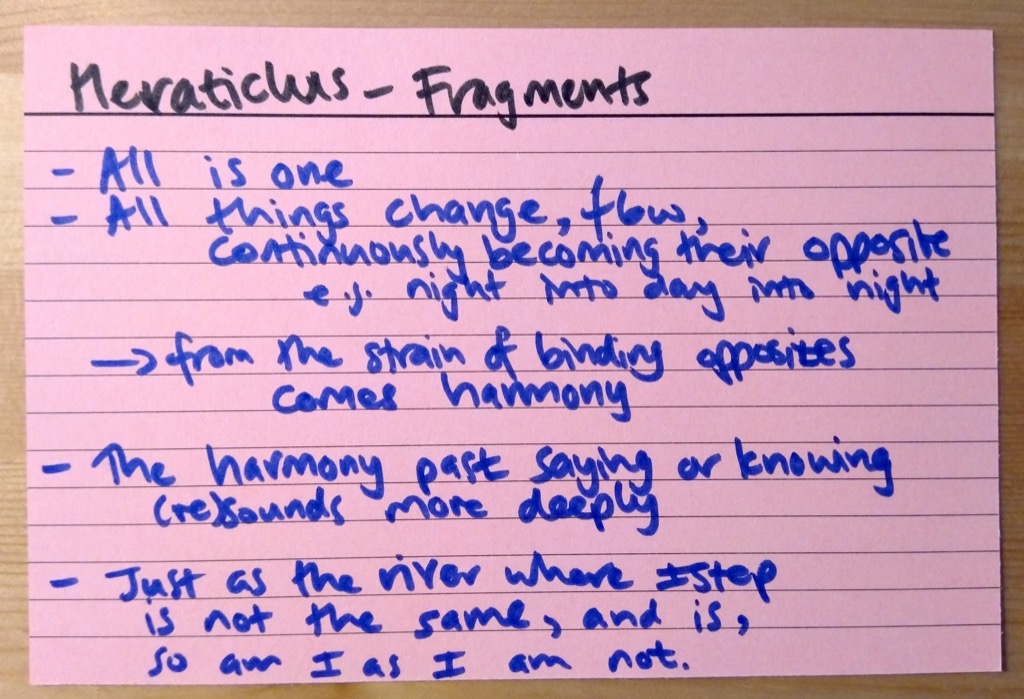 Heraticlus - Fragments
- All is one
- All things change, flow,
continuously becoming their opposite
e.g. night into day into night
→ from the strain of binding opposites
comes harmony
- The harmony past saying or knowing
(re)sounds more deeply
- Just as the river where I step
is not the same, and is,
so am I as I am not.